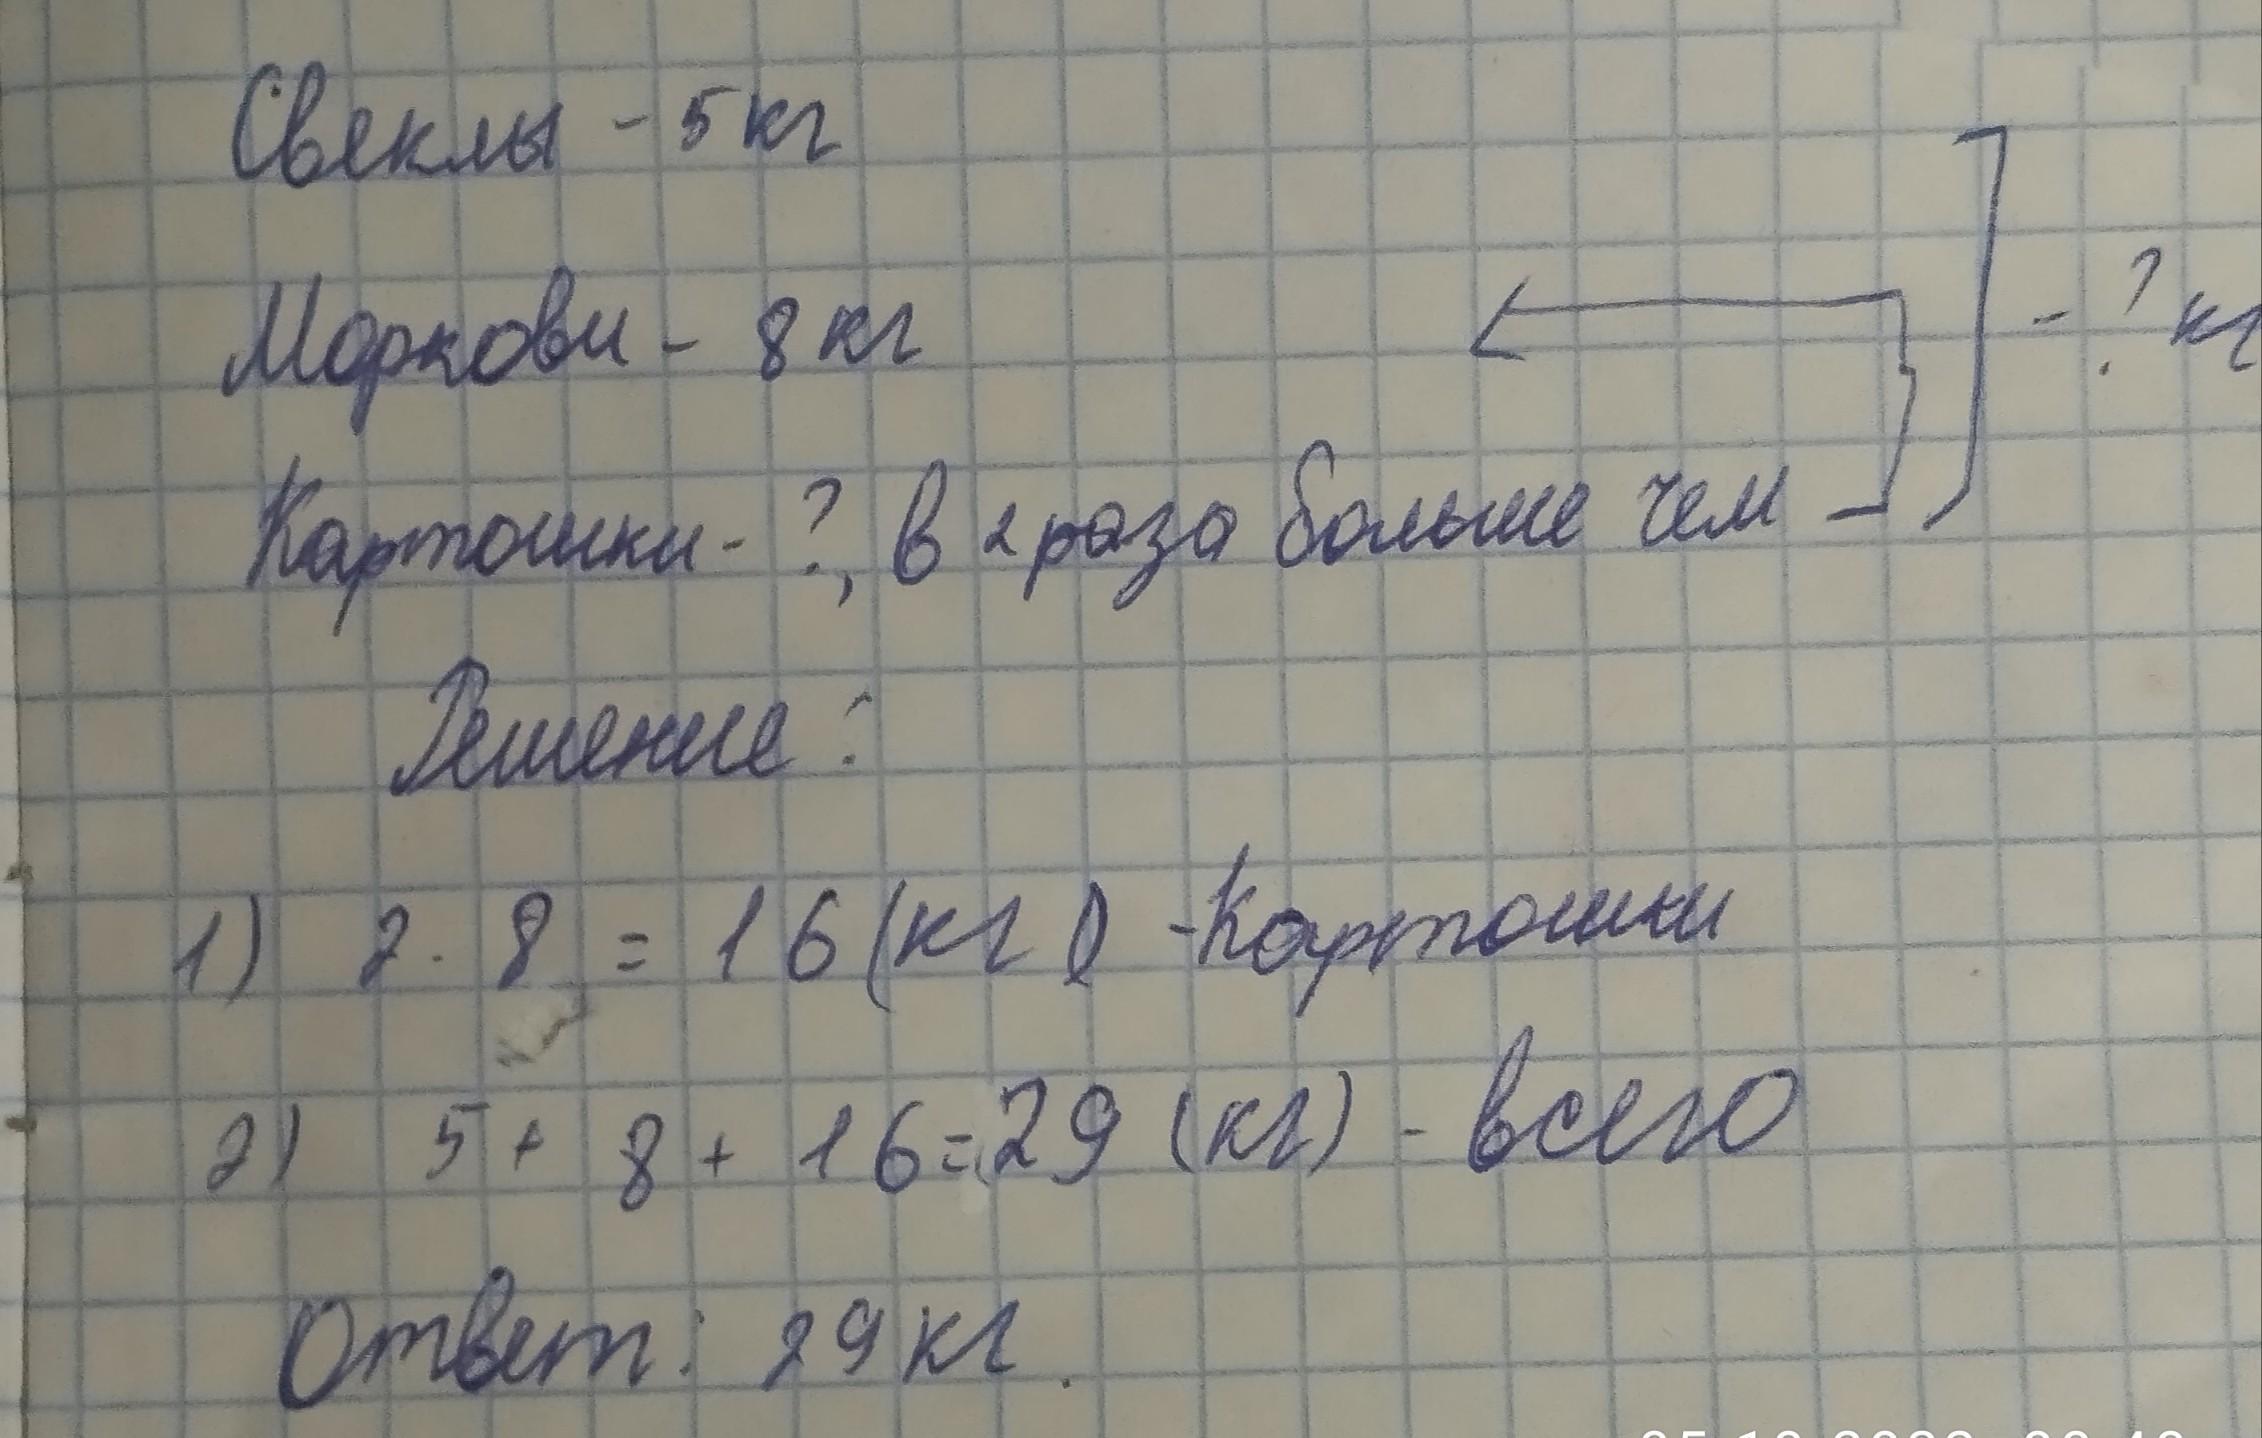 Свеклы - 5 кг
Моркови - 8 кг
- ? кг
Картошки - ?, в 2 раза больше чем
Решение:
1) 2 · 8 = 16 (кг) - Картошки
2) 5 + 8 + 16 = 29 (кг) - всего
Ответ: 29 кг.